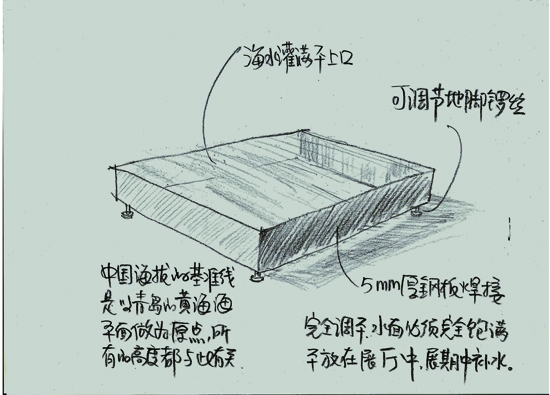 海水灌满平上口
可调节地脚锣丝
中国海拔的基准线
是以青岛的黄海海
平面做为原点,所
有的高度都与此有关
5mm厚钢板焊接
完全调平,水面必须完全饱满
平放在展厅中,展期中补水。